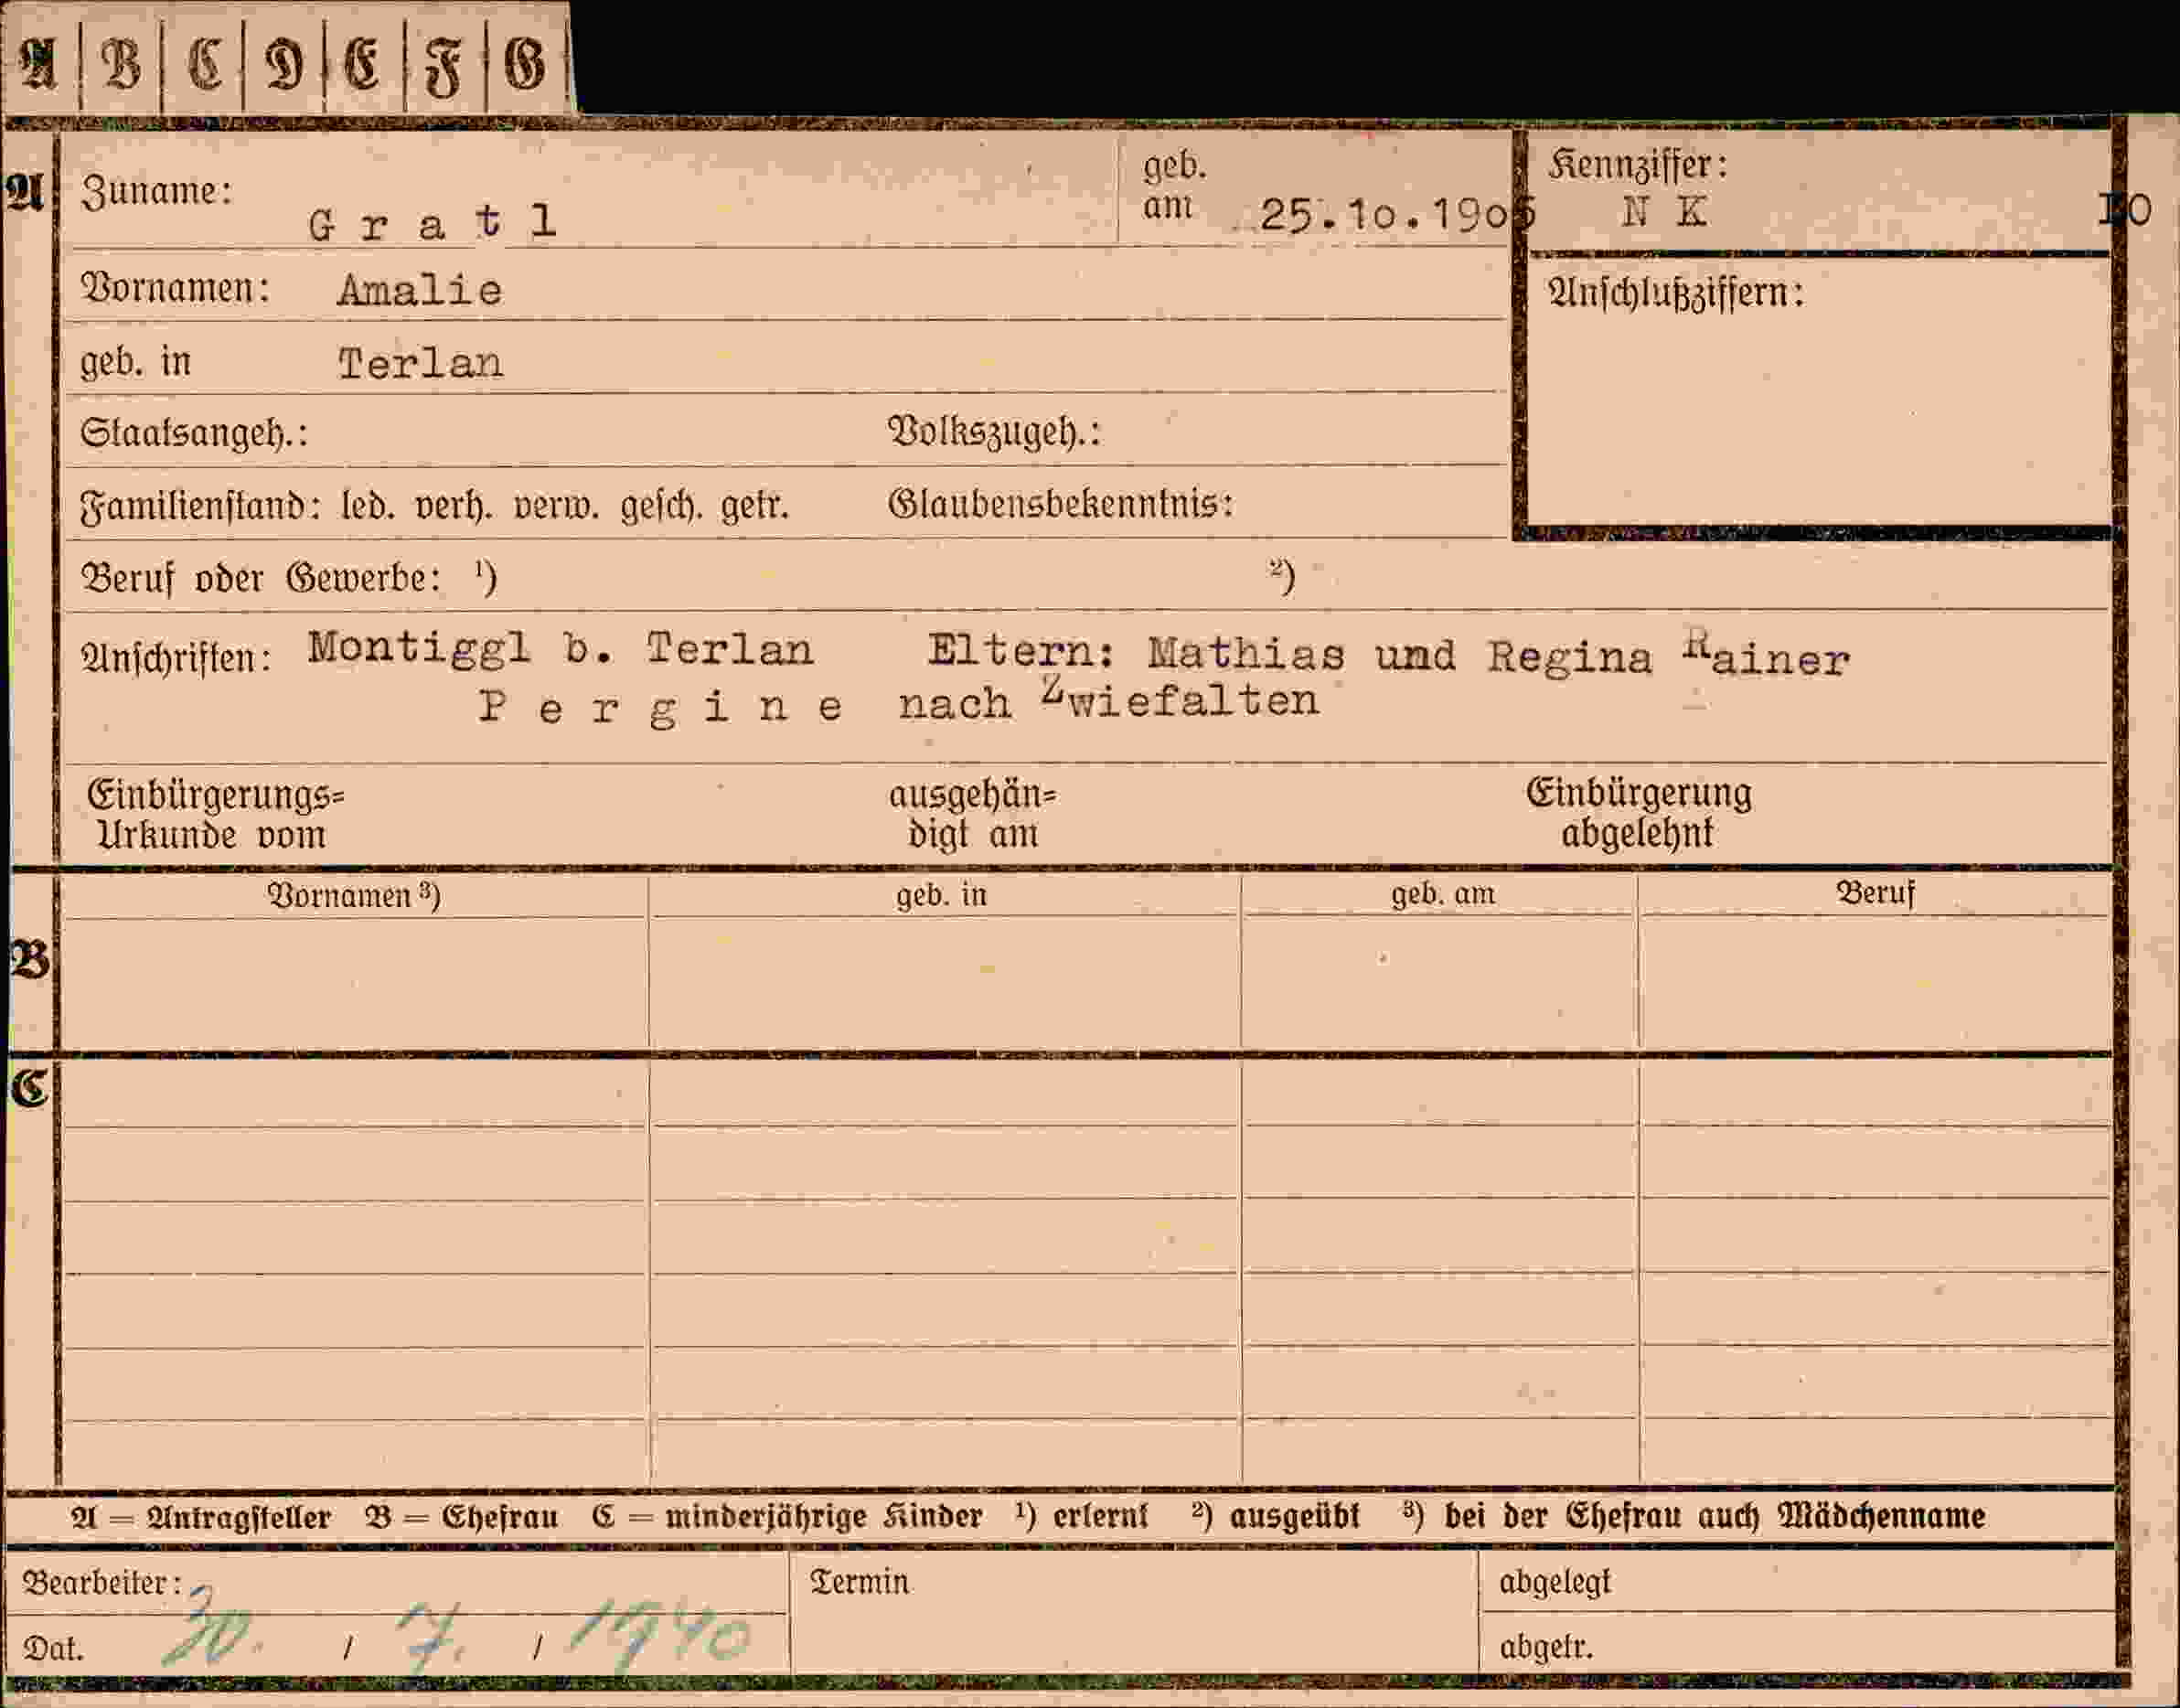 A B C D E F G
A Zuname: Gratl geb. am 25.10.1905 Kennziffer: N K
Vornamen: Amalie Anschlußziffern:
geb. in Terlan
Staatsangeh.: Volkszugeh.:
Familienstand: led. verh. verw. gesch. getr. Glaubensbekenntnis:
Beruf oder Gewerbe: ¹) ²)
Anschriften: Montiggl b. Terlan Eltern: Mathias und Regina Rainer
Pergine nach Zwiefalten
Einbürgerungs= ausgehän= Einbürgerung
Urkunde vom digt am abgelehnt
Vornamen ³) geb. in geb. am Beruf
B
C
A = Antragsteller B = Ehefrau C = minderjährige Kinder ¹) erlernt ²) ausgeübt ³) bei der Ehefrau auch Mädchenname
Bearbeiter: Termin abgelegt
Dat. 30. / 7. / 1940 abgetr.